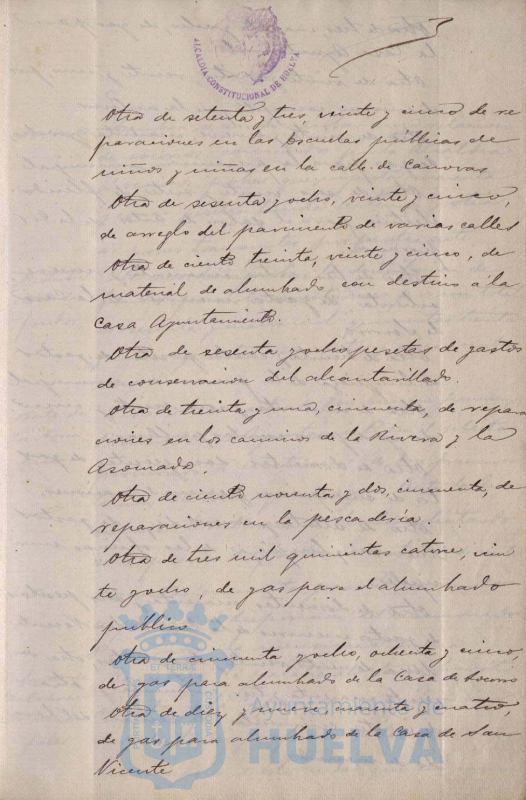 ALCALDIA CONSTITUCIONAL DE HUELVA
Otra de setenta y tres, veinte y cinco de re
paraciones en las Escuelas públicas de
niños y niñas en la calle de Cánovas
Otra de sesenta y ocho, veinte y cinco,
de arreglo del pavimento de varias calles
Otra de ciento treinta, veinte y cinco, de
material de alumbrado con destino á la
Casa Ayuntamiento.
Otra de sesenta y ocho pesetas de gastos
de conservacion del alcantarillado.
Otra de treinta y una, cincuenta, de repara
ciones en los caminos de la Rivera y la
Asomada.
Otra de ciento noventa y dos, cincuenta, de
reparaciones en la pescadería.
Otra de tres mil quinientas catorce, vein
te y ocho, de gas para el alumbrado
publico
Otra de cincuenta y ocho, ochenta y cinco,
de gas para alumbrado de la Casa de Socorro
Otra de diez y nueve, cuarenta y cuatro,
de gas para alumbrado de la Casa de San
Vicente
Ayuntamiento de
HUELVA